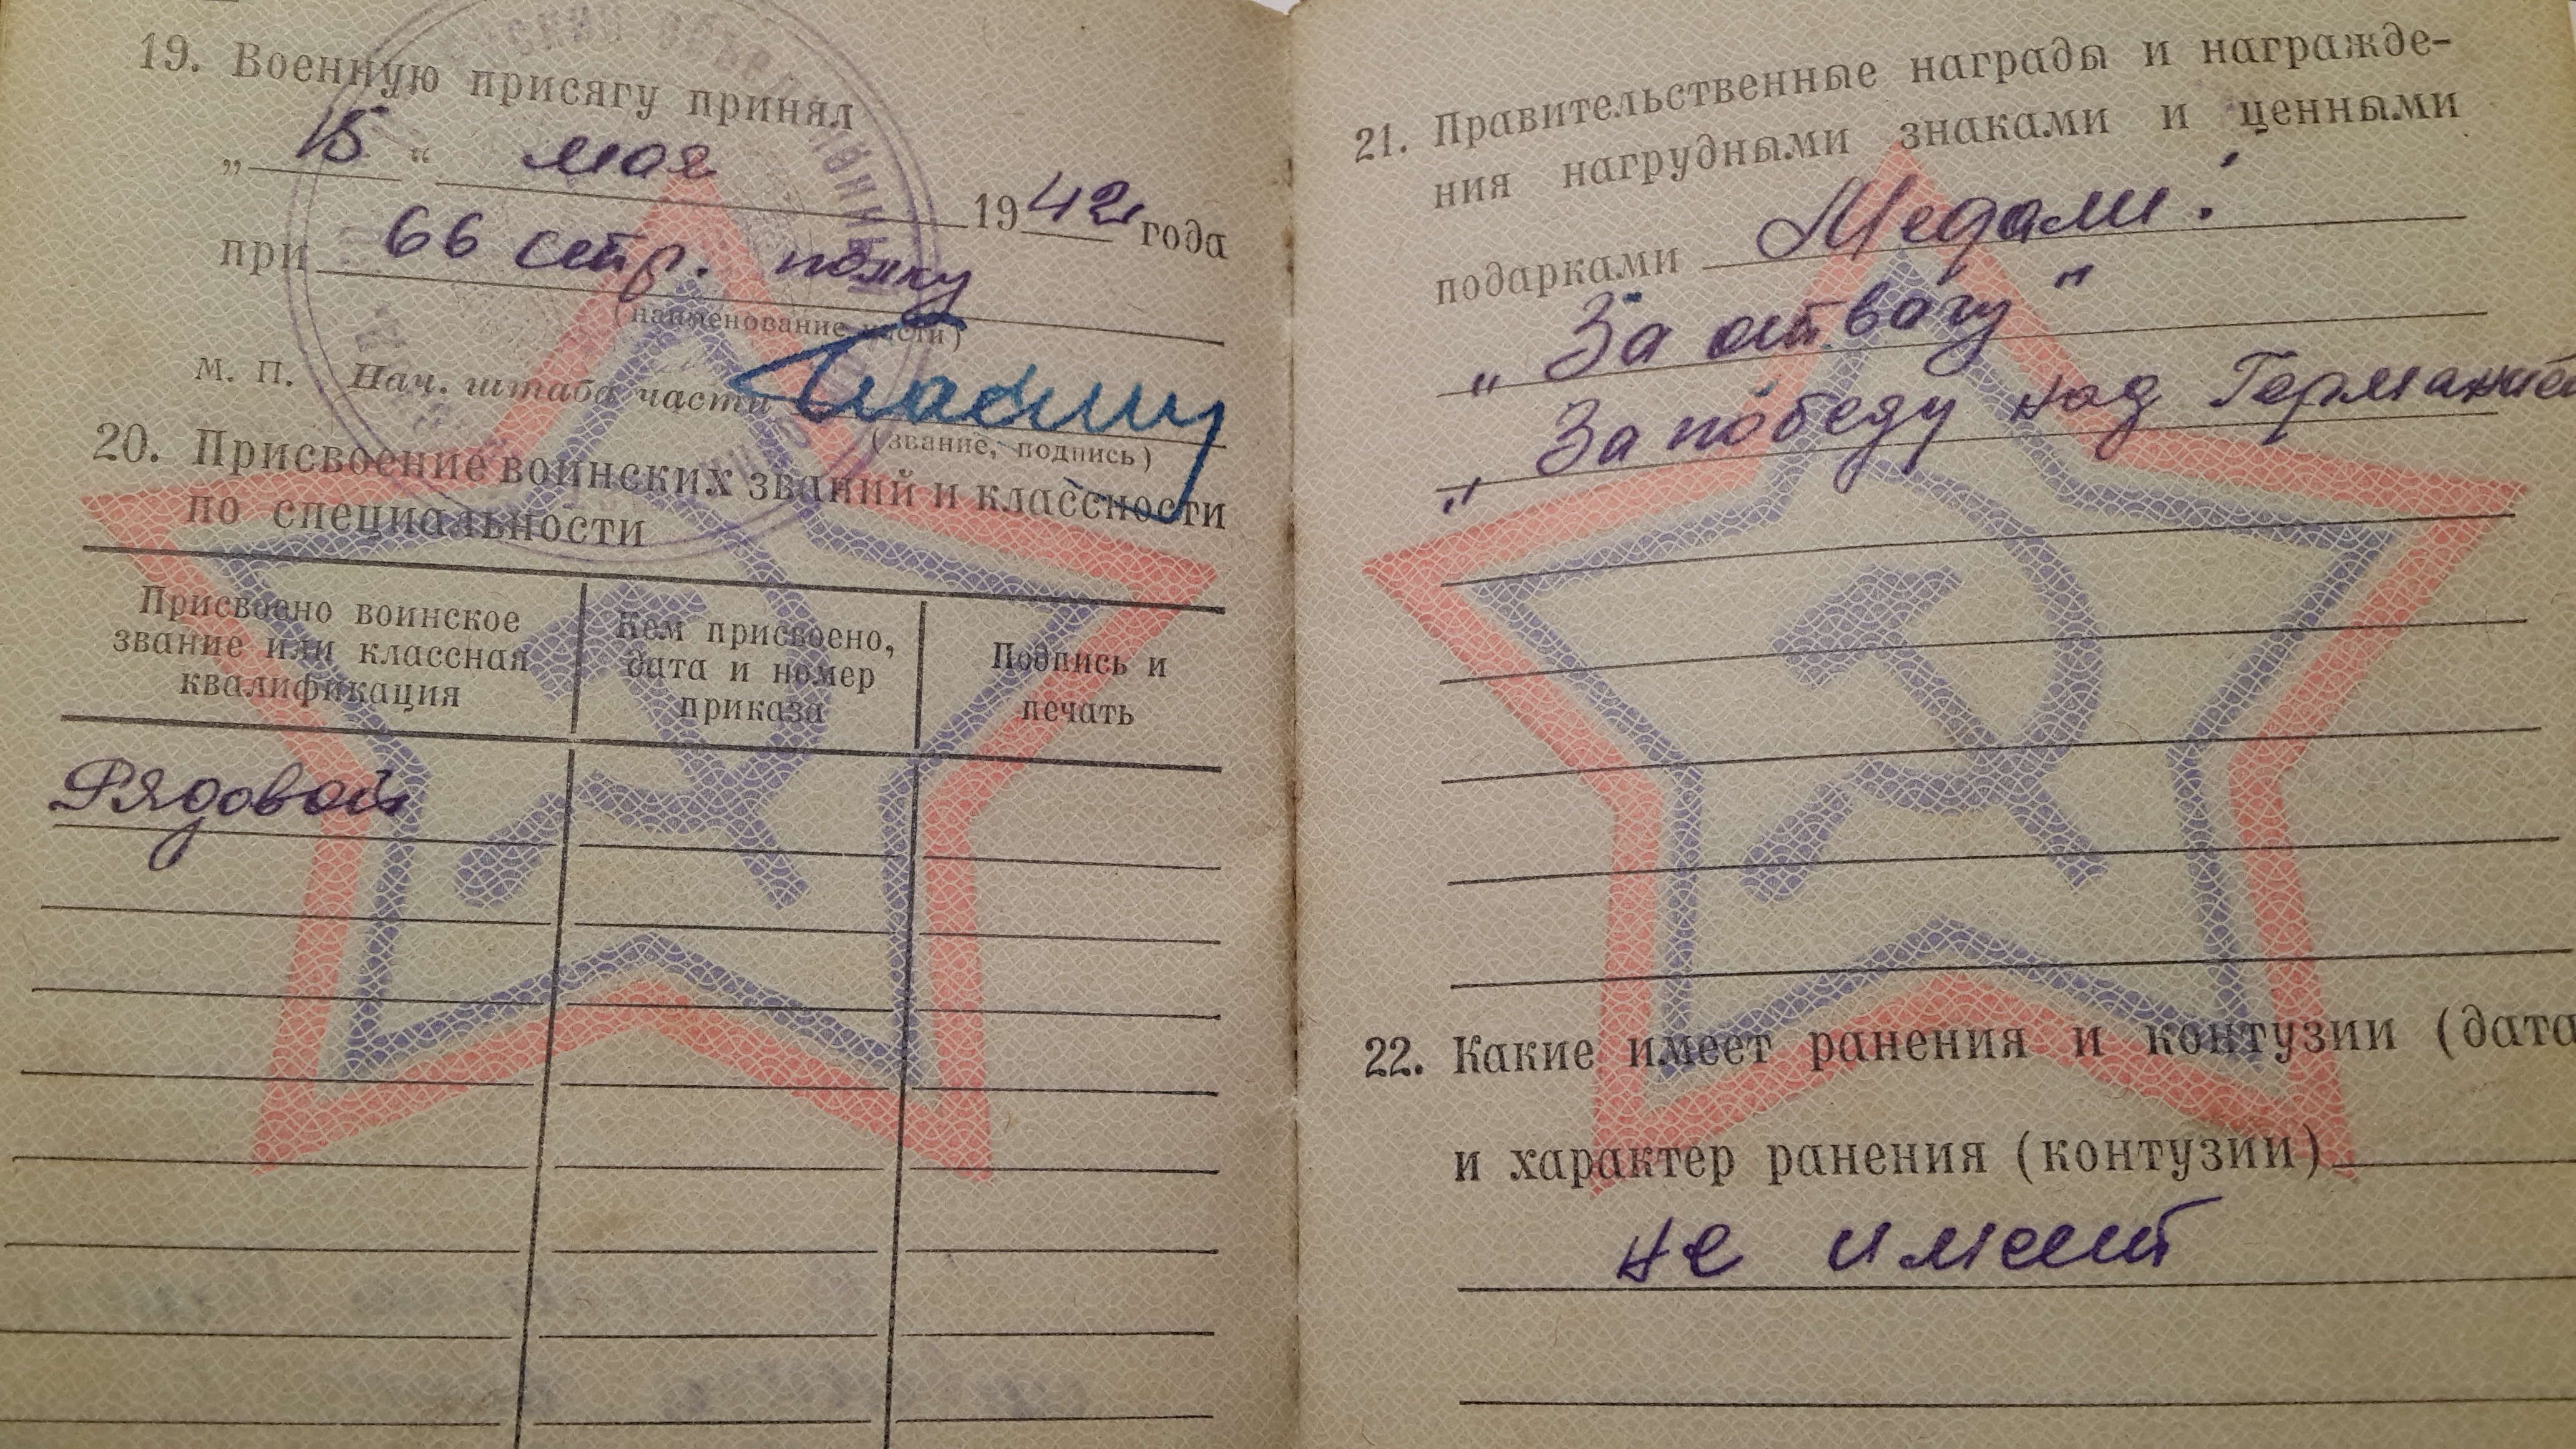 19. Военную присягу принял
„ 15 “ мая 1942 года
при 66 стр. полку
(наименование части)
М. П. Нач. штаба части
(звание, подпись)
20. Присвоение воинских званий и классности
по специальности
Присвоено воинское звание или классная квалификация
Кем присвоено, дата и номер приказа
Подпись и печать
Рядовой
21. Правительственные награды и награжде-
ния нагрудными знаками и ценными
подарками Медали:
„За отвагу"
„За победу над Германией
"
22. Какие имеет ранения и контузии (дата
и характер ранения (контузии)
не имеет